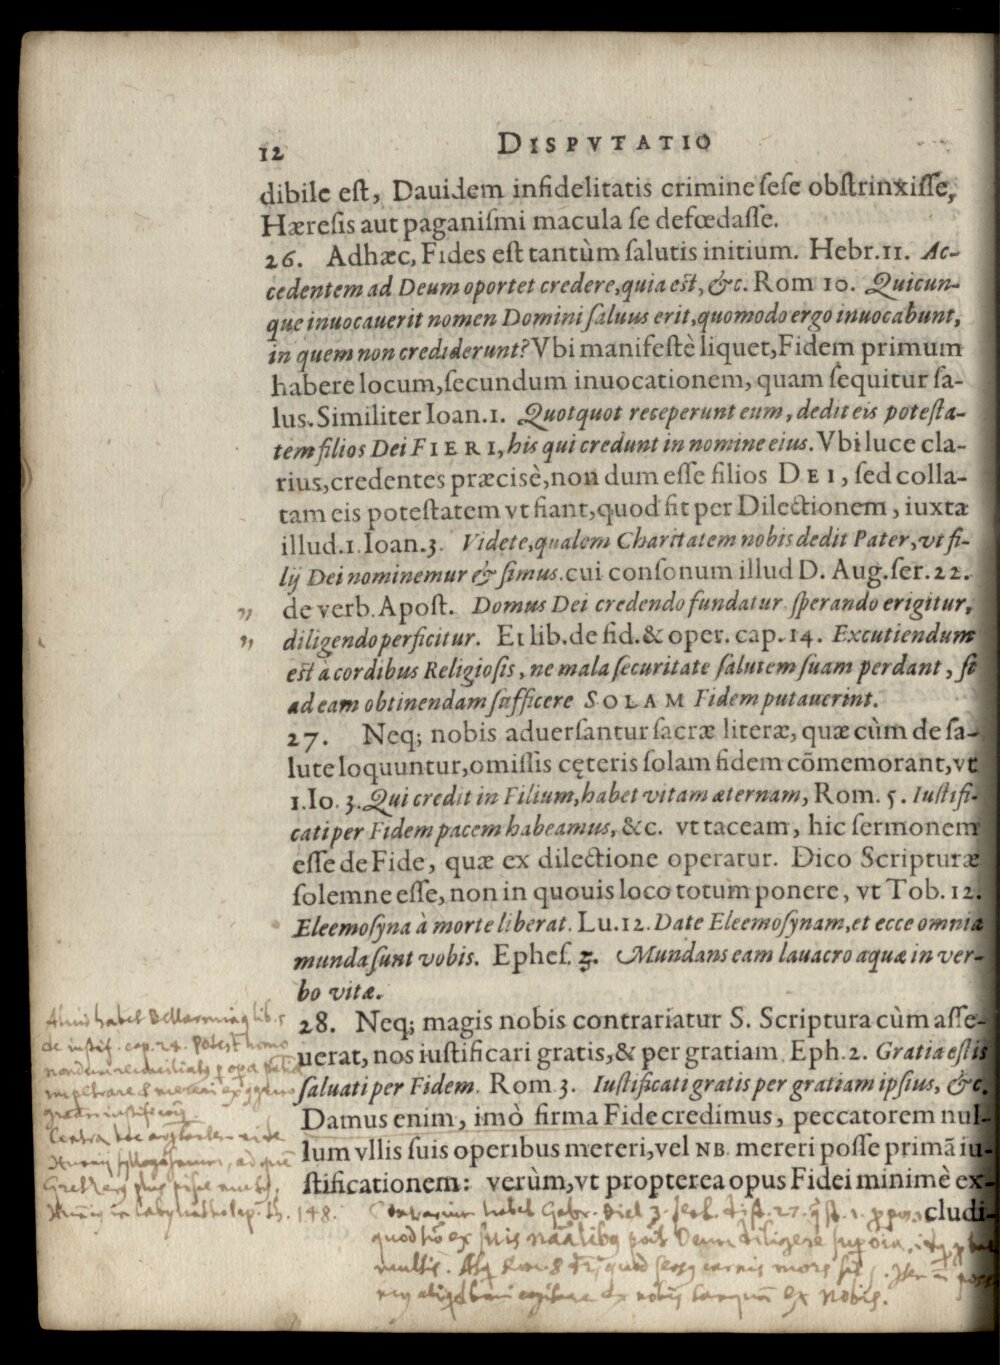 12 DISPVTATIO
dibile eſt, Dauidem infidelitatis crimine ſeſe obſtrinxiſſe,
Hæreſis aut paganiſmi macula ſe defœdaſſe.
26. Adhæc, Fides eſt tantùm ſalutis initium. Hebr. 11. Ac-
cedentem ad Deum oportet credere, quia eſt, &c. Rom 10. Quicun-
que inuocauerit nomen Domini ſaluus erit, quomodo ergo inuocabunt,
in quem non crediderunt? Vbi manifeſtè liquet, Fidem primum
habere locum, ſecundum inuocationem, quam ſequitur ſa-
lus. Similiter Ioan. 1. Quotquot receperunt eum, dedit eis poteſta-
tem filios Dei FIERI, his qui credunt in nomine eius. Vbi luce cla-
rius, credentes præcisè, non dum eſſe filios DEI, ſed colla-
tam eis poteſtatem vt fiant, quod fit per Dilectionem, iuxta
illud. 1. Ioan. 3. Videte, qualem Charitatem nobis dedit Pater, vt fi-
lij Dei nominemur & ſimus. cui conſonum illud D. Aug. ſer. 22.
„ de verb. Apoſt. Domus Dei credendo fundatur ſperando erigitur,
„ diligendo perficitur. Et lib. de fid. & oper. cap. 14. Excutiendum
eſt à cordibus Religioſis, ne mala ſecuritate ſalutem ſuam perdant, ſi
ad eam obtinendam ſufficere SOLAM Fidem putauerint.
27. Neq; nobis aduerſantur ſacræ literæ, quæ cùm de ſa-
lute loquuntur, omiſſis cęteris ſolam fidem cõmemorant, vt
1. Io. 3. Qui credit in Filium, habet vitam æternam, Rom. 5. Iuſtifi-
cati per Fidem pacem habeamus, &c. vt taceam, hic ſermonem
eſſe de Fide, quæ ex dilectione operatur. Dico Scripturæ
ſolemne eſſe, non in quouis loco totum ponere, vt Tob. 12.
Eleemoſyna à morte liberat. Lu. 12. Date Eleemoſynam, et ecce omnia
munda ſunt vobis. Epheſ. 5. Mundans eam lauacro aquæ in ver-
bo vitæ.
28. Neq; magis nobis contrariatur S. Scriptura cùm aſſe-
uerat, nos iuſtificari gratis, & per gratiam Eph. 2. Gratia eſtis
ſaluati per Fidem. Rom 3. Iuſtificati gratis per gratiam ipſius, &c.
Damus enim, imò firma Fide credimus, peccatorem nul-
lum vllis ſuis operibus mereri, vel NB. mereri poſſe primã iu-
ſtificationem: verùm, vt propterea opus Fidei minimè ex-
cludi-
Aliud habet Bellarminq lib. 5
de iustif. cap. 21. Potest homo
Contra
148.
Contrarium habet Gabr. Biel 3.
ex nobis tanquã ex nobis.